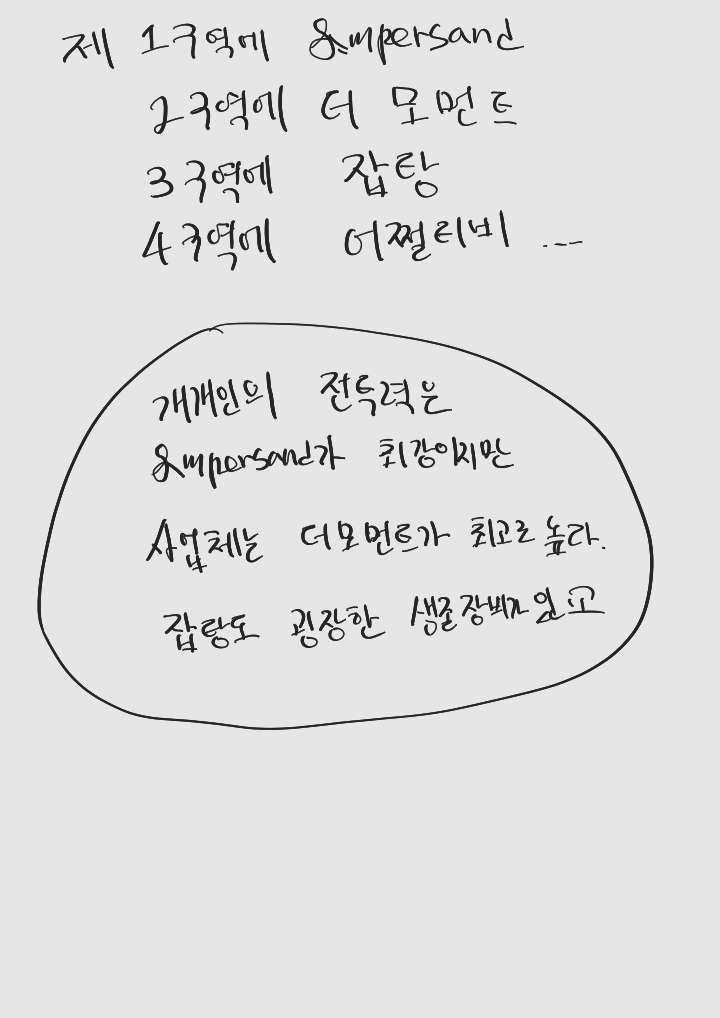 제 1구역에 &mpersand
2구역에 더 모먼트
3구역에 잡탕
4구역에 어쩔티비 ...
개개인의 전투력은
&mpersand가 최강이지만
사업체는 더모먼트가 최고로 높다.
잡탕도 굉장한 생존장비가 있고